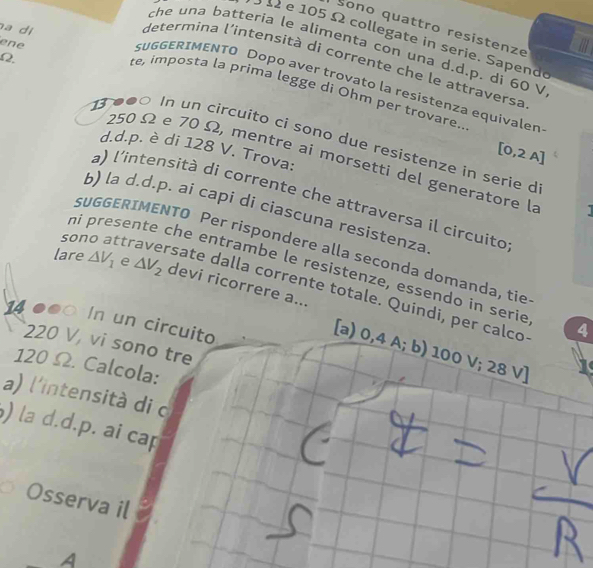 sono quattro resistenze
Ω e 105 Ω collegate in serie. Sapendo
che una batteria le alimenta con una d.d.p. di 60 V,
determina l'intensità di corrente che le attraversa.
SUGGERIMENTO Dopo aver trovato la resistenza equivalen-
te, imposta la prima legge di Ohm per trovare...
[0,2 A]
a di
ene
Ω.
13 In un circuito ci sono due resistenze in serie di
250 Ω e 70 Ω, mentre ai morsetti del generatore la
d.d.p. è di 128 V. Trova:
a) l'intensità di corrente che attraversa il circuito;
b) la d.d.p. ai capi di ciascuna resistenza.
SUGGERIMENTO Per rispondere alla seconda domanda, tie-
ni presente che entrambe le resistenze, essendo in serie,
sono attraversate dalla corrente totale. Quindi, per calco-
lare ΔV₁ e ΔV₂ devi ricorrere a...
[a) 0,4 A; b) 100 V; 28 V]
4
14 In un circuito
220 V, vi sono tre
120 Ω. Calcola:
a) l'intensità di c
b) la d.d.p. ai cap
Osserva il
A
I = V
R